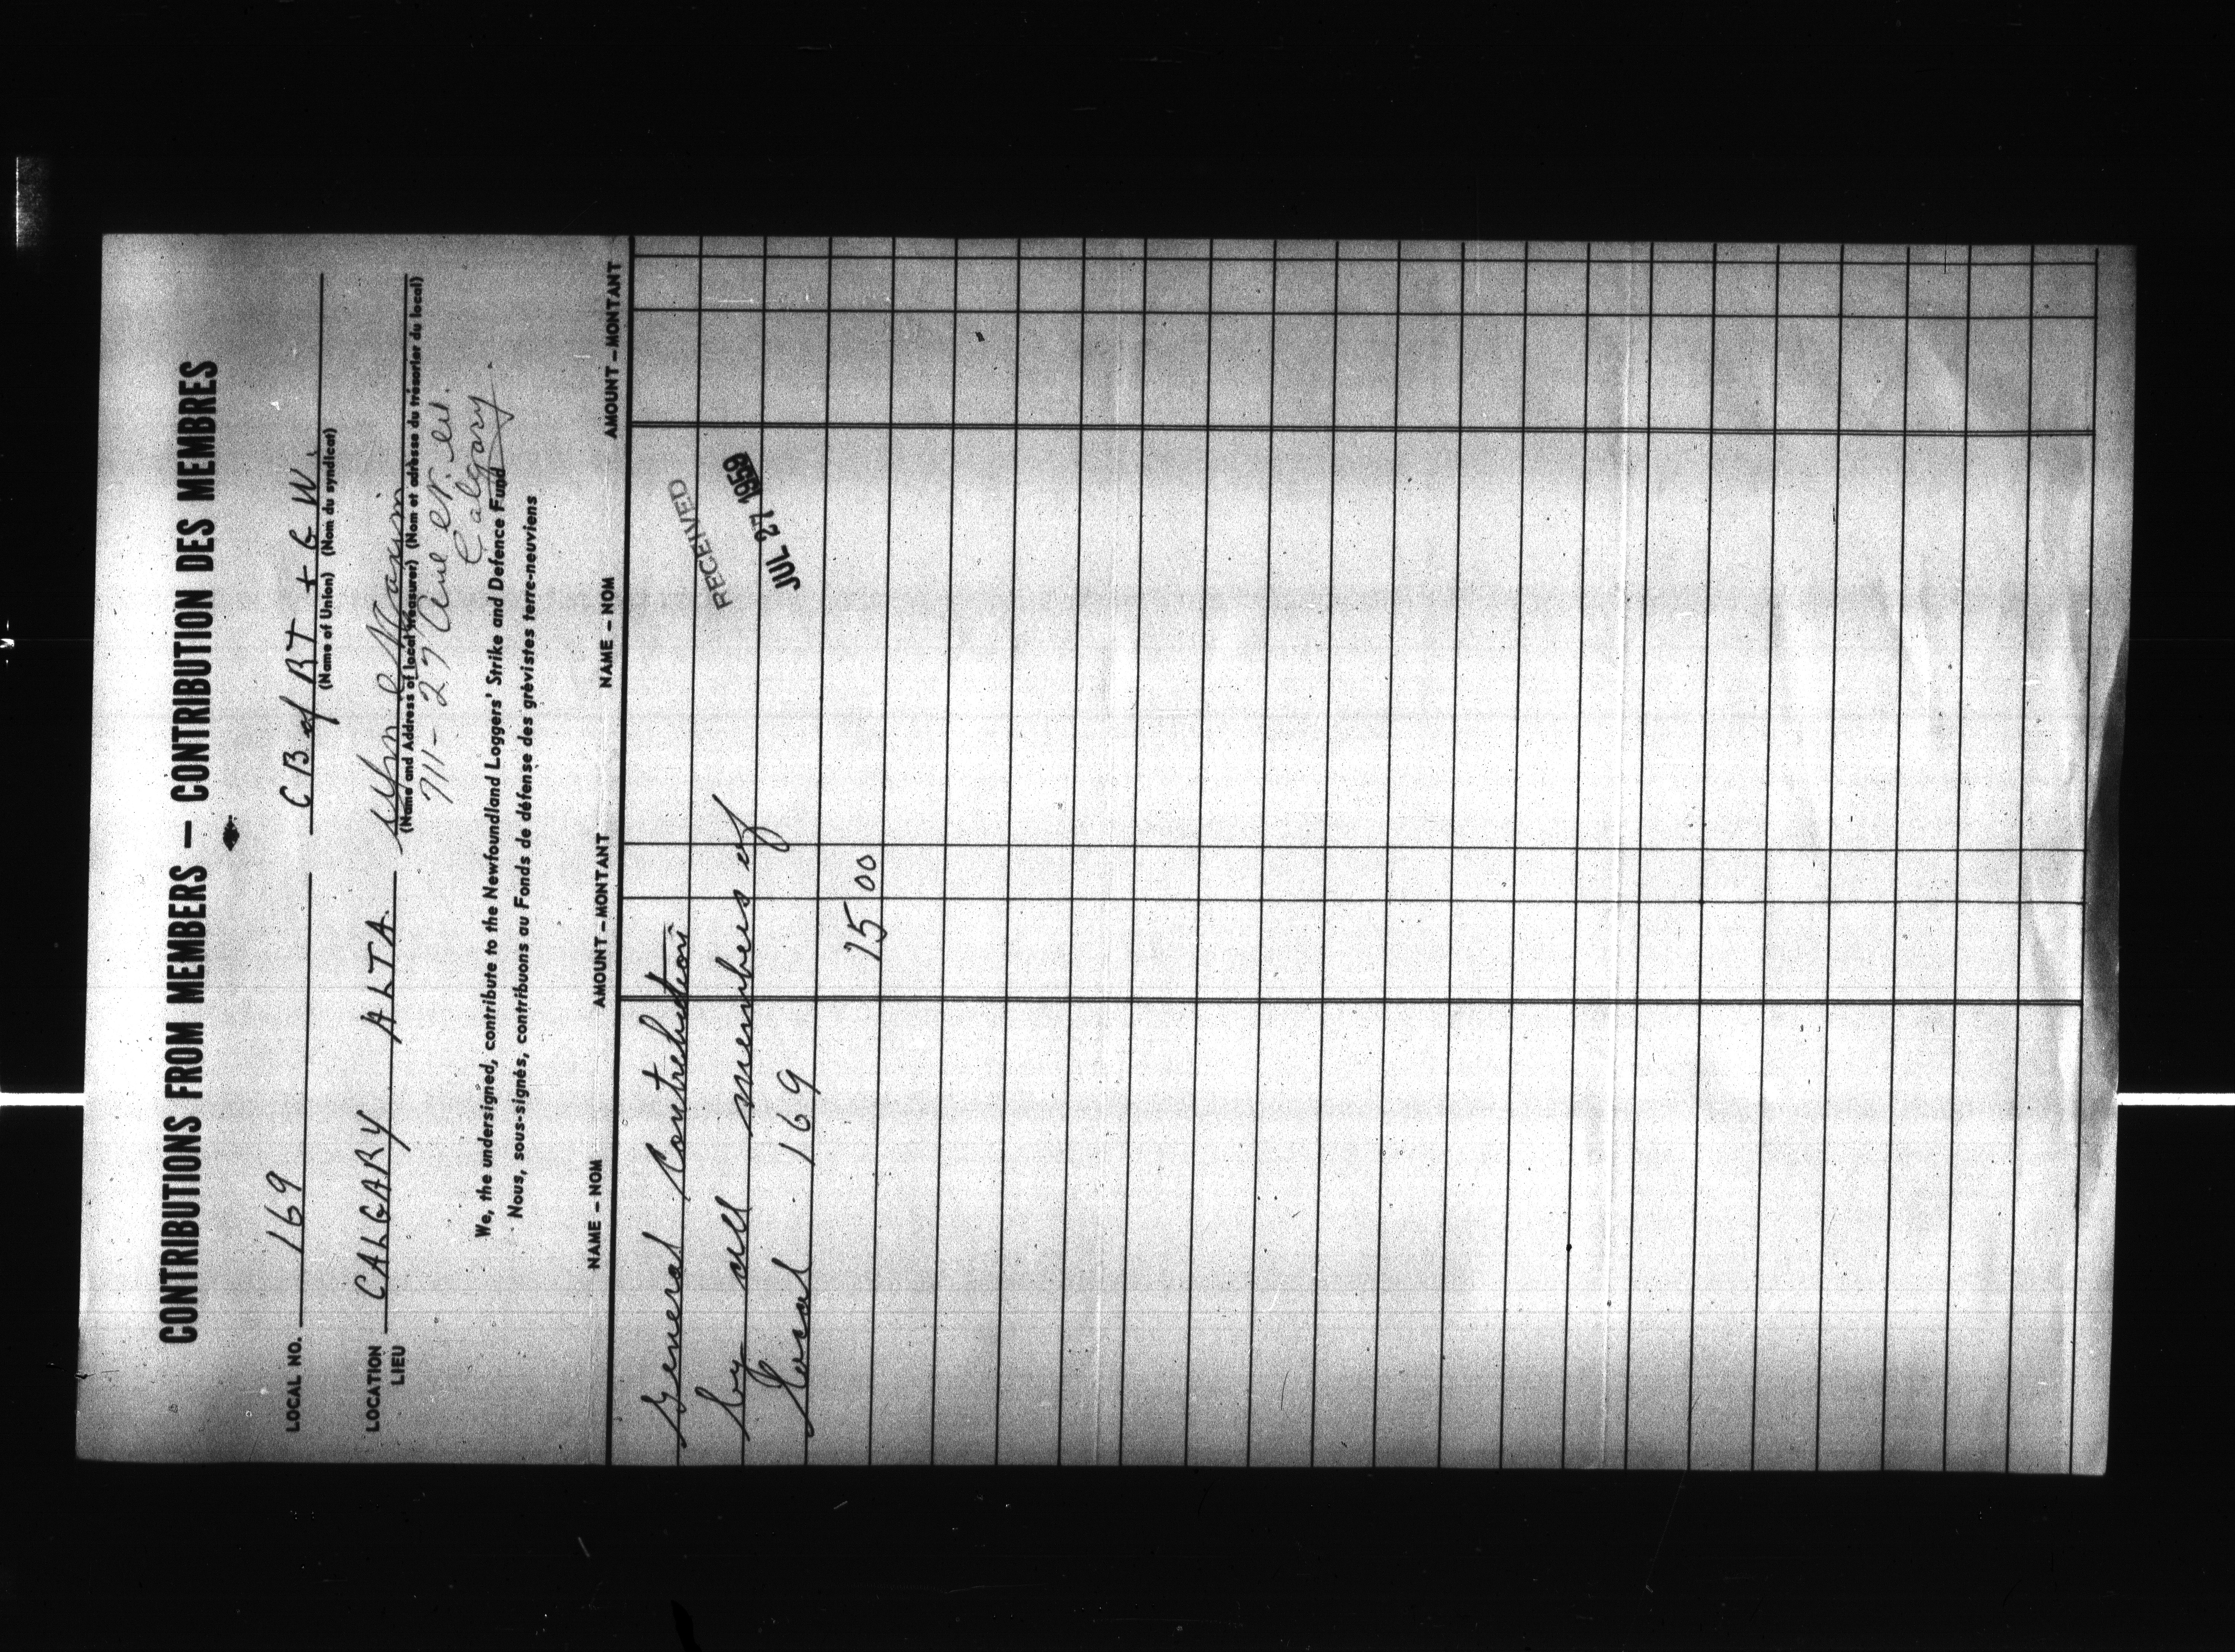 CONTRIBUTIONS FROM MEMBERS — CONTRIBUTION DES MEMBRES
LOCAL NO. 169 C B of RT + G W.
(Name of Union) (Nom du syndicat)
LOCATION CALGARY ALTA.
LIEU
(Name and Address of local treasurer) (Nom et adresse du trésorier du local)
711 - 27 Ave N. W.
Calgary
We, the undersigned, contribute to the Newfoundland Loggers' Strike and Defence Fund
Nous, sous-signés, contribuons au Fonds de défense des grévistes terre-neuviens
NAME – NOM AMOUNT – MONTANT NAME – NOM AMOUNT – MONTANT
General Contribution
by all members of
Local 169
15 00
RECEIVED
JUL 27 1959